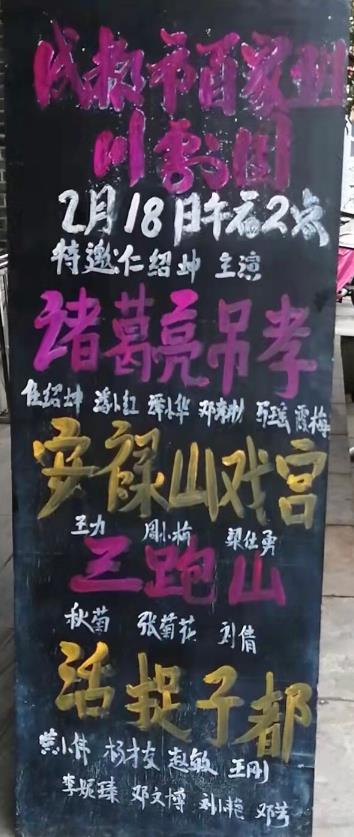 成都市百家班
川剧团
2月18日午后2点
特邀仁绍坤 主演
诸葛亮吊孝
任绍坤 潘小红 霞梅
安禄山戏宫
王力 周小梅 梁仕勇
三跑山
秋菊 张菊花 刘倩
活捉子都
杨才友 赵敏 王刚
邓文博 刘小艳 邓芳